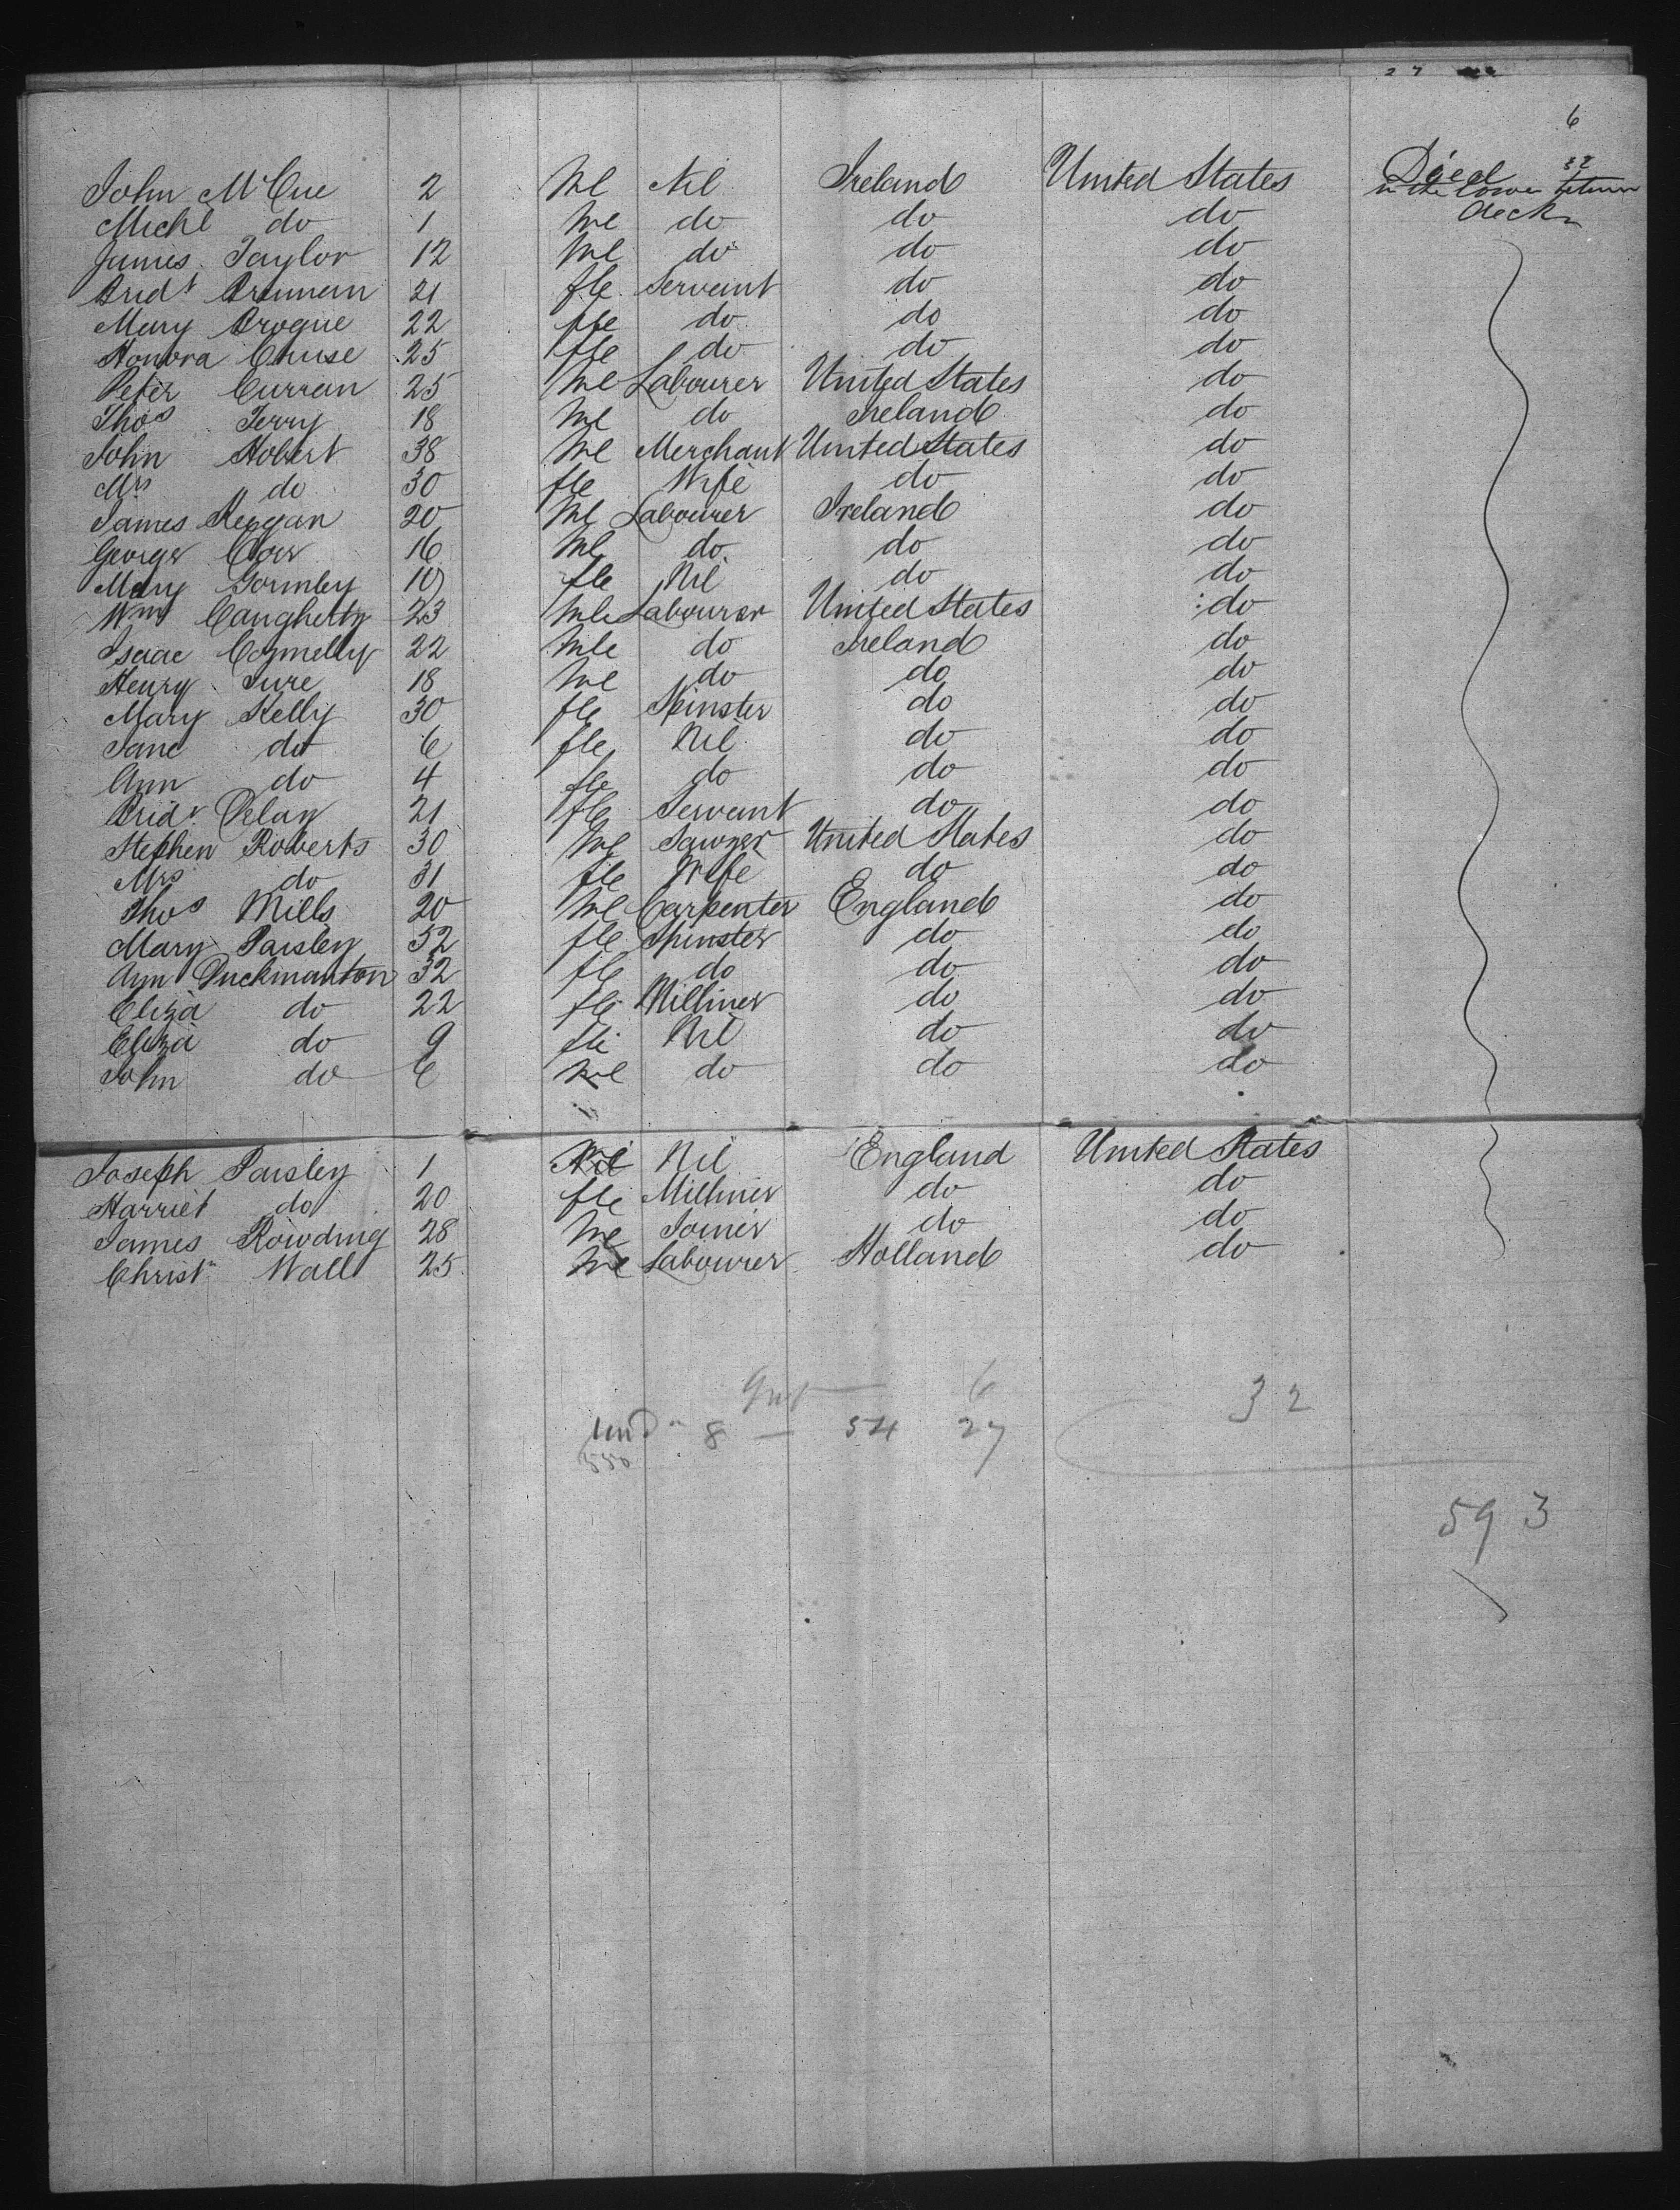 6
John McCue 2 Ml Nil Ireland United States Died 32
in the lower
Michl do 1 Ml do do do deck
James Taylor 12 Ml do do do
Bridt Brennan 21 fle Servant do do
Mary Brogue 22 fle do do do
Honora Cruise 25 fle do do do
Peter Curran 25 Ml Labourer United States do
Thos Terry 18 Ml do Ireland do
John Hobert 38 Ml Merchant United States do
Mrs do 30 fle Wife do do
James Keegan 20 Ml Labourer Ireland do
George Corr 16 Ml do do do
Mary Gormley 10 fle Nil do do
Wm Caughetty 23 Mle Labourer United States do
Isaac Connelly 22 Mle do Ireland do
Henry Ture 18 Ml do do do
Mary Kelly 30 fle Spinster do do
Jane do 6 fle Nil do do
Ann do 4 fle do do do
Bridt Delay 21 fle Servant do do
Stephen Roberts 30 Ml Sawyer United States do
Mrs do 31 fle Wife do do
Thos Mills 20 Ml Carpenter England do
Mary Paisley 52 fle Spinster do do
Ann Duckmanton 32 fle do do do
Eliza do 22 fle Milliner do do
Eliza do 9 fle Nil do do
John do 6 Ml do do do
Joseph Paisley 1 Nil England United States
Harriet do 20 fle Milliner do do
James Rowding 28 Ml Joiner do do
Christn Wall 25 Ml Labourer Holland do
6 32
8 — 54 27
550
593